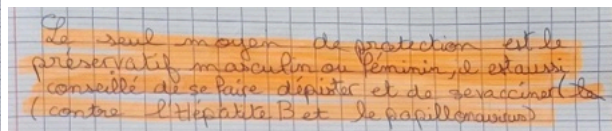 Le seul moyen de protection est le
préservatif masculin ou féminin, il est aussi
conseillé de se faire dépister et de se vacciner
(contre l'Hépatite B et le papillonavirus)